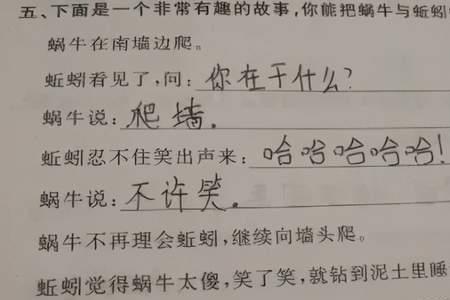 五、下面是一个非常有趣的故事,你能把蜗牛与蚯蚓
蜗牛在南墙边爬。
蚯蚓看见了,问:你在干什么?
蜗牛说:爬墙。
蚯蚓忍不住笑出声来:哈哈哈哈哈!
蜗牛说:不许笑。
蜗牛不再理会蚯蚓,继续向墙头爬。
蚯蚓觉得蜗牛太傻,笑了笑,就钻到泥土里睡